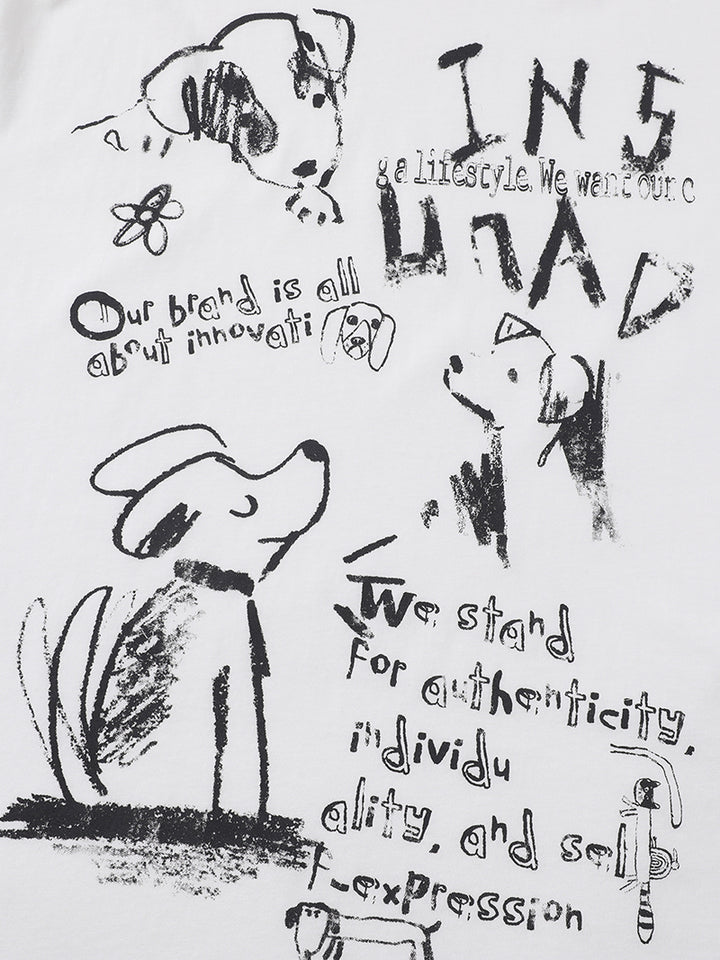 INS
g a lifestyle. We want our c
UNAD
Our brand is all
about innovati
We stand
for authenticity,
individu
ality, and sel
f-expression